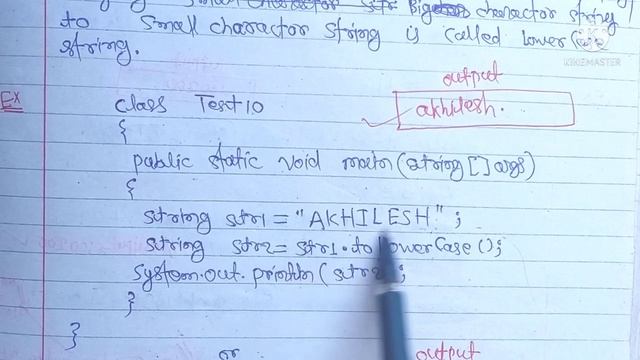 Big character string
to Small character string is called lower Case
string.
KINEMASTER
output
Ex
class Test10
akhilesh.
{
public static void main(string[] args)
{
string str1 = "AKHILESH";
string str2 = str1.toLowerCase();
System.out.println(str2);
}
}
or
output